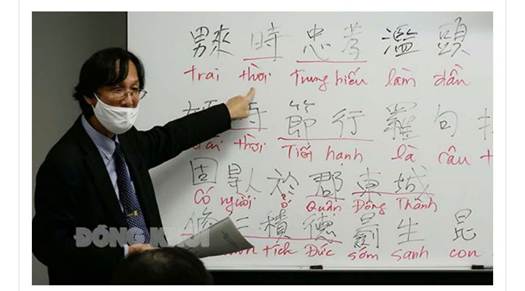 𤳆 時 忠 孝 濫 頭
trai thời Trung hiếu làm đầu
時 節 行 羅 句
thời Tiết hạnh là câu
固 𠊛 於 郡 東 城
Có người ở Quận Đông Thành
積 德 生 昆
tích Đức sớm sanh con
ĐỒNG